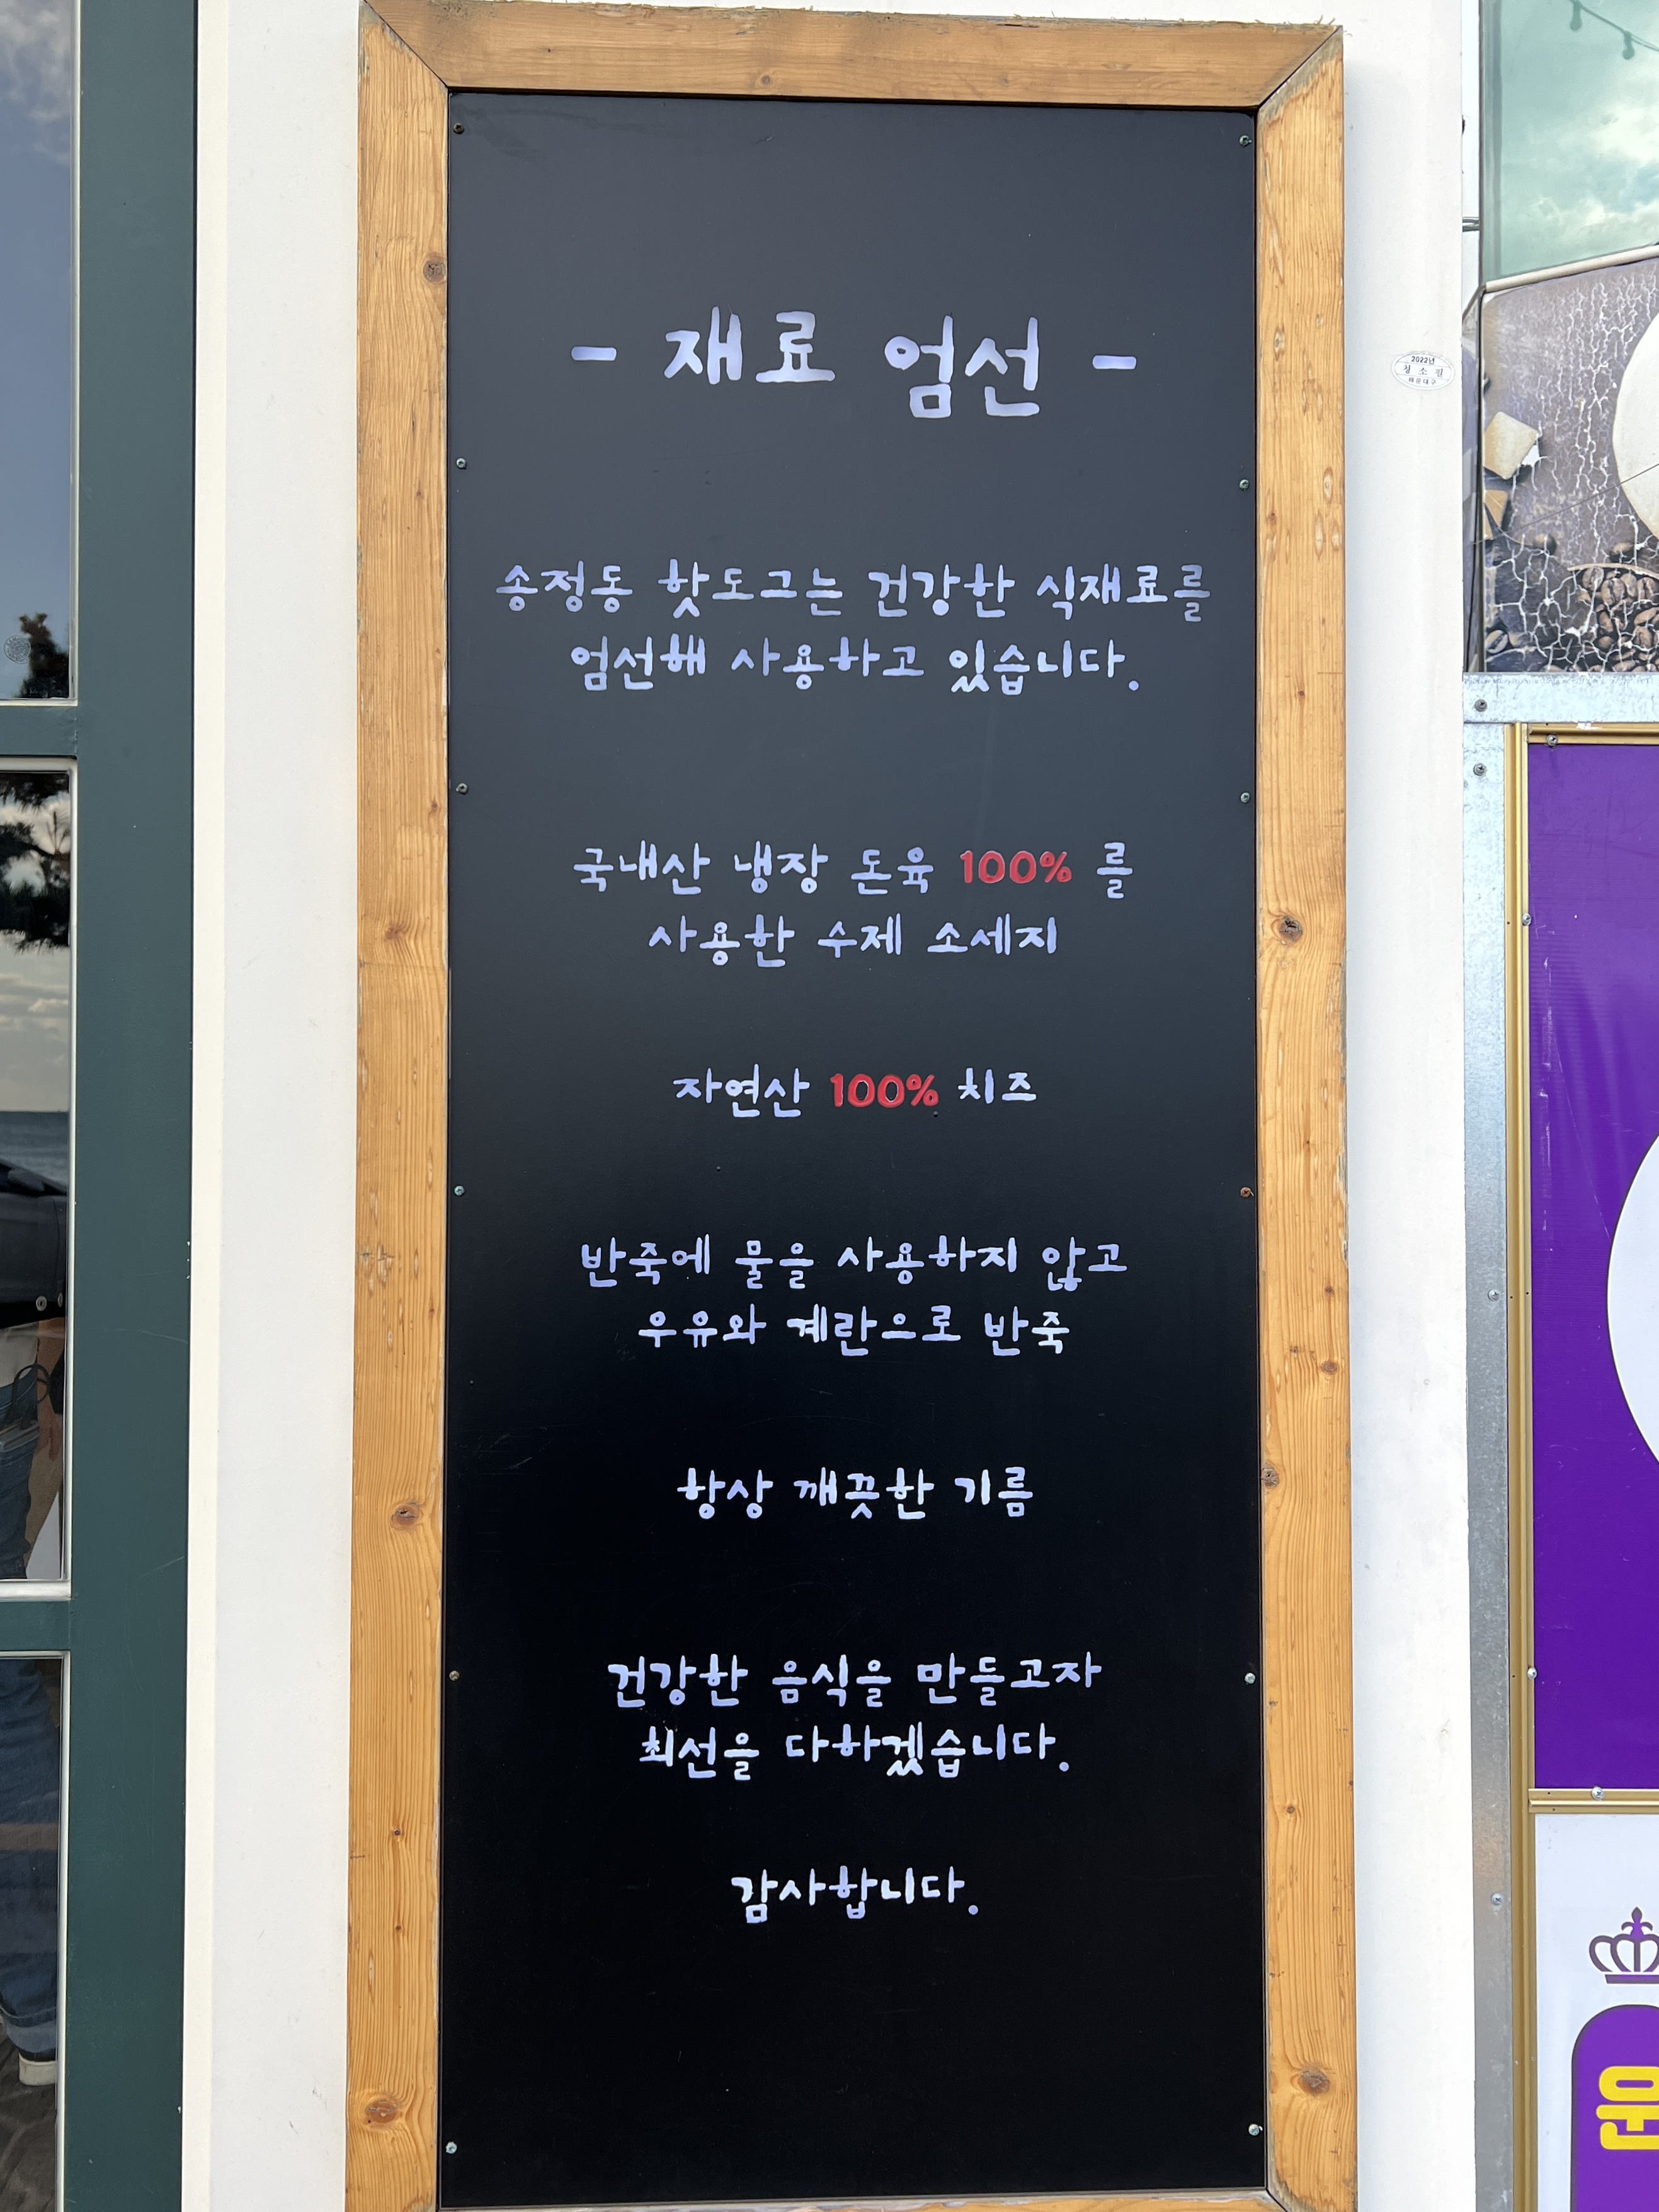 - 재료 엄선 -
송정동 핫도그는 건강한 식재료를
엄선해 사용하고 있습니다.
국내산 냉장 돈육 100% 를
사용한 수제 소세지
자연산 100% 치즈
반죽에 물을 사용하지 않고
우유와 계란으로 반죽
항상 깨끗한 기름
건강한 음식을 만들고자
최선을 다하겠습니다.
감사합니다.
2022년
청소필
해운대구
운